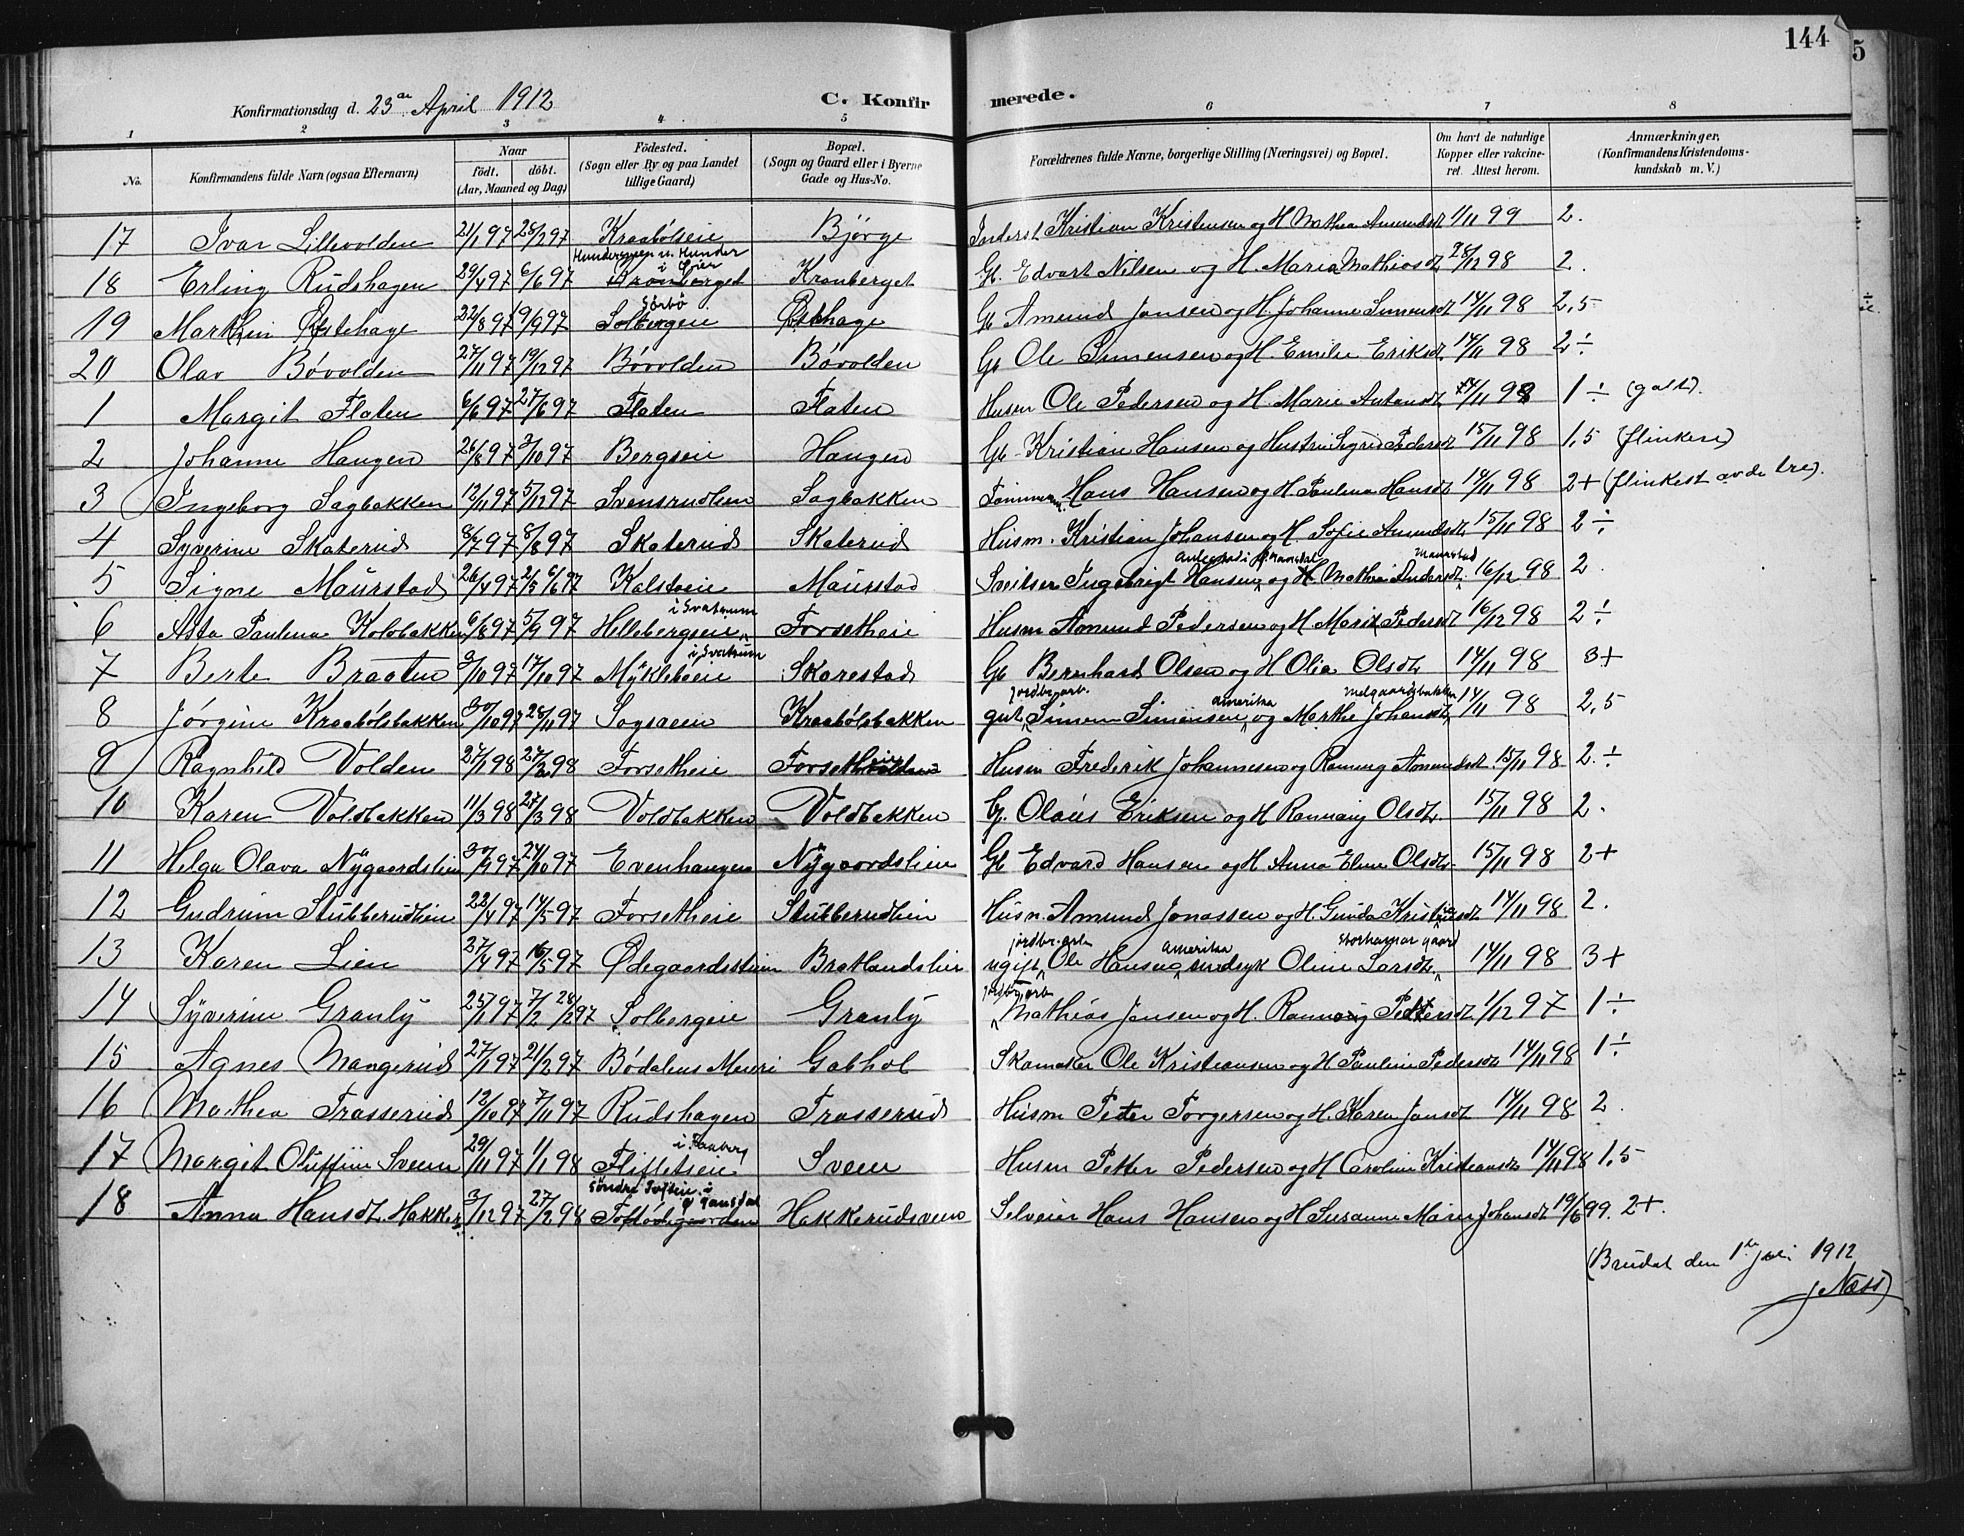 144
5
Konfirmationsdag d. 23de April 1912 C. Konfirmerede.
1 2 3 4 5 6 7 8
No. Konfirmandens fulde Navn (ogsaa Efternavn) Naar født. døbt. (Aar, Maaned og Dag) Fødested. (Sogn eller By og paa Landet tillige Gaard) Bopæl. (Sogn og Gaard eller i Byerne Gade og Hus-No. Forældrenes fulde Navne, borgerlige Stilling (Næringsvei) og Bopæl. Om havt de naturlige Kopper eller vakcineret. Attest herom. Anmærkninger. (Konfirmandens Kristendomskundskab m. V.)
17 Ivar Lillevolden 21/1 97 28/2 97 Kraabølseie Bjørge Inderst Kristian Kristensen og H Mathea Amundsdt 1/11 99 2.
18 Erling Rudshagen 29/4 97 6/6 97 Kronberget Kronberget Gb. Edvart Nilsen og H. Maria Mathiasdt 28/12 98 2.
19 Martin Østehage 22/8 97 19/9 97 Sørbø Solbergeie Østhage Gb Amund Jansen og H. Johanne Simensdt 14/11 98 2,5
20 Olav Bøvolden 27/11 97 19/12 97 Bøvolden Bøvolden Gb Ole Simensen og H. Emilie Eriksdt 14/11 98 2 ÷
1 Margit Flaten 6/6 97 27/6 97 Flaten Flaten Husm Ole Pedersen og H. Marie Antonsdt 14/11 98 1 ÷ (galt).
2 Johanne Haugen 26/8 97 3/10 97 Bergseie Haugen Gb. Kristian Hansen og Hustru Sigrid Pedersdt 15/11 98 1,5 (flinkere)
3 Ingeborg Sagbakken 12/11 97 5/12 97 Svensrudlien Sagbakken Tømmerm. Hans Hansen og H Paulina Hansdt 14/11 98 2+ (flinkest av de tre).
4 Syverine Skaterud 8/7 97 8/8 97 Skaterud Skaterud Husm. Kristian Johansen og H. Sofie Amundsdt 15/11 98 2 ÷
5 Signe Maurstad 26/4 97 6/6 97 Kalstveie Maurstad Sveitser Ingebrigt Hansen og H Mathea Andersdt Maurstad 16/12 98 2.
6 Asta Paulina Kolobakken 6/8 97 5/9 97 Hellebergseie i Svatsum Forsetheie Husm Amund Pedersen og H Marit Pedersdt 16/12 98 2 ÷
7 Berte Braaten 3/10 97 17/10 97 Mykleheie i Svatsum Skarestad Gb Bernhard Olsen og H Olia Olsdt 14/11 98 3+
8 Jørgine Kraabølsbakken 30/10 97 28/11 97 Sagsveen Kraabølsbakken jordbr.arb. gut Simen Simensen Amerika og Marthe Johansdt Melgaardsbakken 14/11 98 2,5
9 Ragnhild Volden 27/1 98 27/2 98 Forsetheie Husm Frederik Johannesen og Rønnaug Amundsdt 15/11 98 2. ÷
10 Karen Voldbakken 11/3 98 27/3 98 Voldbakken Voldbakken G. Olaus Eriksen og H Rønnaug Olsdt. 15/11 98 2.
11 Helga Olava Nygaardslien 30/9 97 24/10 97 Evenhaugen Nygaardslien Gb Edvard Hansen og H. Anna Eline Olsdt 15/11 98 2+
12 Gudrun Stubberudlien 22/4 97 14/5 97 Forsetheie Stubberudlien Husm. Amund Jonassen og H Gunda Kristiansdt 14/11 98 2.
13 Karen Lien 27/4 97 16/5 97 Ødegaardsstuen Bratlandslien jordbr.arb. ugift Ole Hansen Amerika Oline Larsdt Storhamar gaard 14/11 98 3+
14 Syverine Granly 25/1 97 28/2 97 Solbergeie Granly jordbr.arb. Mathias Jansen og H. Rønnaug Pedersdt 1/12 97 1 ÷
15 Agnes Mangerud 27/1 97 21/2 97 Bødalens Meieri Gabhol Skomaker Ole Kristiansen og H Pauline Pedersdt 14/11 98 1 ÷
16 Mathea Trasserud 12/10 97 7/11 97 Rudshagen Trasserud Husm Peter Torgersen og H. Karen Jansdt 14/11 98 2.
17 Margit Oluffine Sveen 29/11 97 1/1 98 Flifletseie i Faaberg Sveen Husm Petter Pedersen og H Caroline Kristiansdt 14/11 98 1,5
18 Anna Hansdt. Hakker. 3/12 97 27/2 98 Toftødegaarden Hakkerudsveen Selveier Hans Hansen og H Susanne Marie Johansdt 19/6 99. 2+.
(Brudal den 1ste juli 1912
J Næss)